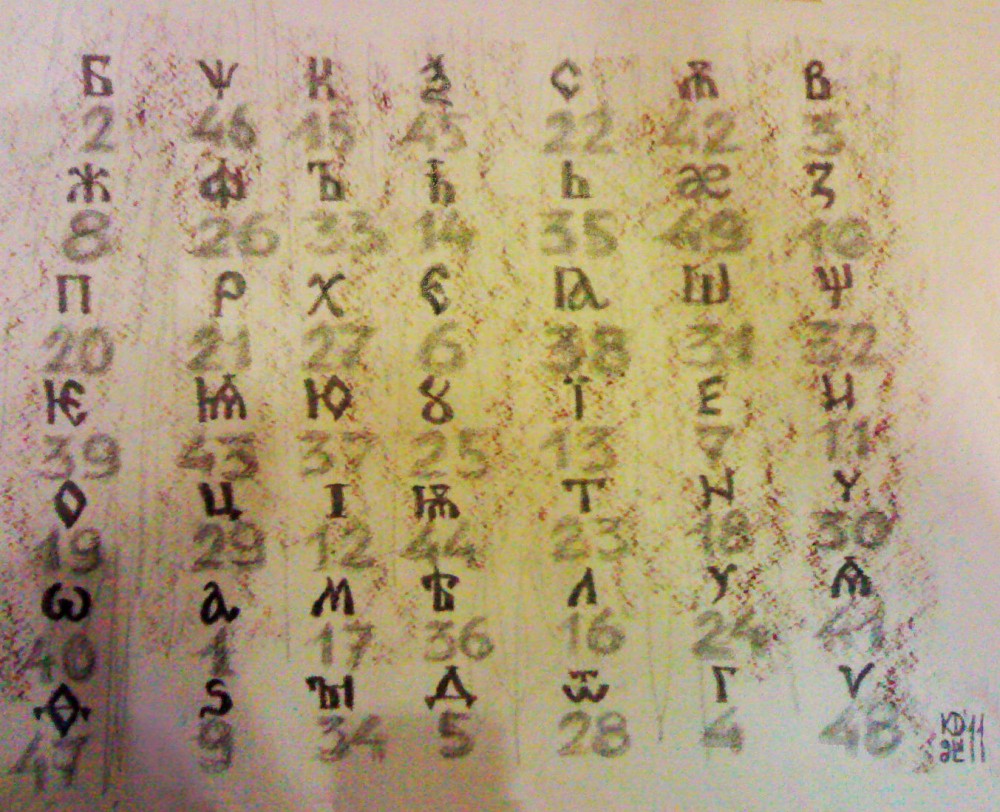 Б Ѱ К Ѯ С Ѫ В
2 46 15 45 22 42 3
Ж Ф Ъ Ћ Ь Ӕ З
8 26 33 14 35 49 10
П Р Х Є Ꙗ Ш Щ
20 21 27 6 38 31 32
Ѥ Ѩ Ю Ꙋ Ї Е И
39 43 37 25 13 7 11
О Ц І Ѭ Т N Ү
19 29 12 44 23 18 30
Ѡ а М Ѣ Л У Ѧ
40 1 17 36 16 24 41
Ѳ Ѕ Ꙑ Д Ѿ Г Ѵ
47 9 34 5 28 4 48